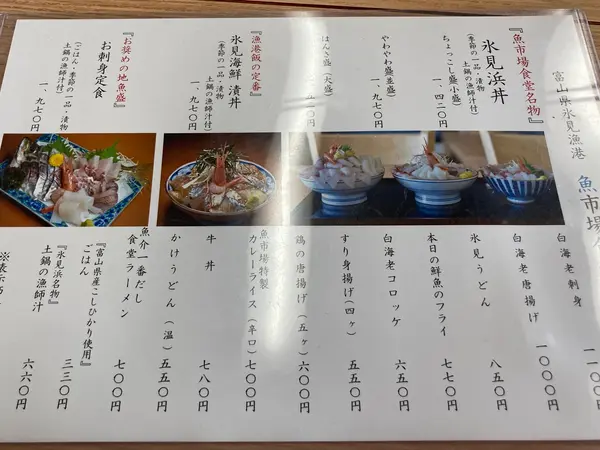 富山県氷見漁港 魚市場
『魚市場食堂名物』
氷見浜丼
(季節の一品・漬物
土鍋の漁師汁付)
ちょっこし盛(小盛)
一、四二〇円
やわやわ盛(並盛)
一、九七〇円
はんさ盛(大盛)
『漁港飯の定番』
氷見海鮮漬丼
(季節の一品・漬物
土鍋の漁師汁付)
一、九七〇円
『お奨めの地魚盛』
お刺身定食
(ごはん・季節の一品・漬物
土鍋の漁師汁付)
一、九七〇円
白海老刺身
一一〇〇円
白海老唐揚げ
一〇〇〇円
氷見うどん
八五〇円
本日の鮮魚のフライ
七七〇円
白海老コロッケ
六五〇円
すり身揚げ(四ヶ)
五五〇円
鶏の唐揚げ(五ヶ)
六〇〇円
魚市場特製
カレーライス(辛口)
七〇〇円
牛丼
七八〇円
かけうどん(温)
五五〇円
魚介一番だし
食堂ラーメン
七〇〇円
『富山県産こしひかり使用』
ごはん
三三〇円
『氷見浜名物』
土鍋の漁師汁
六六〇円
※表示